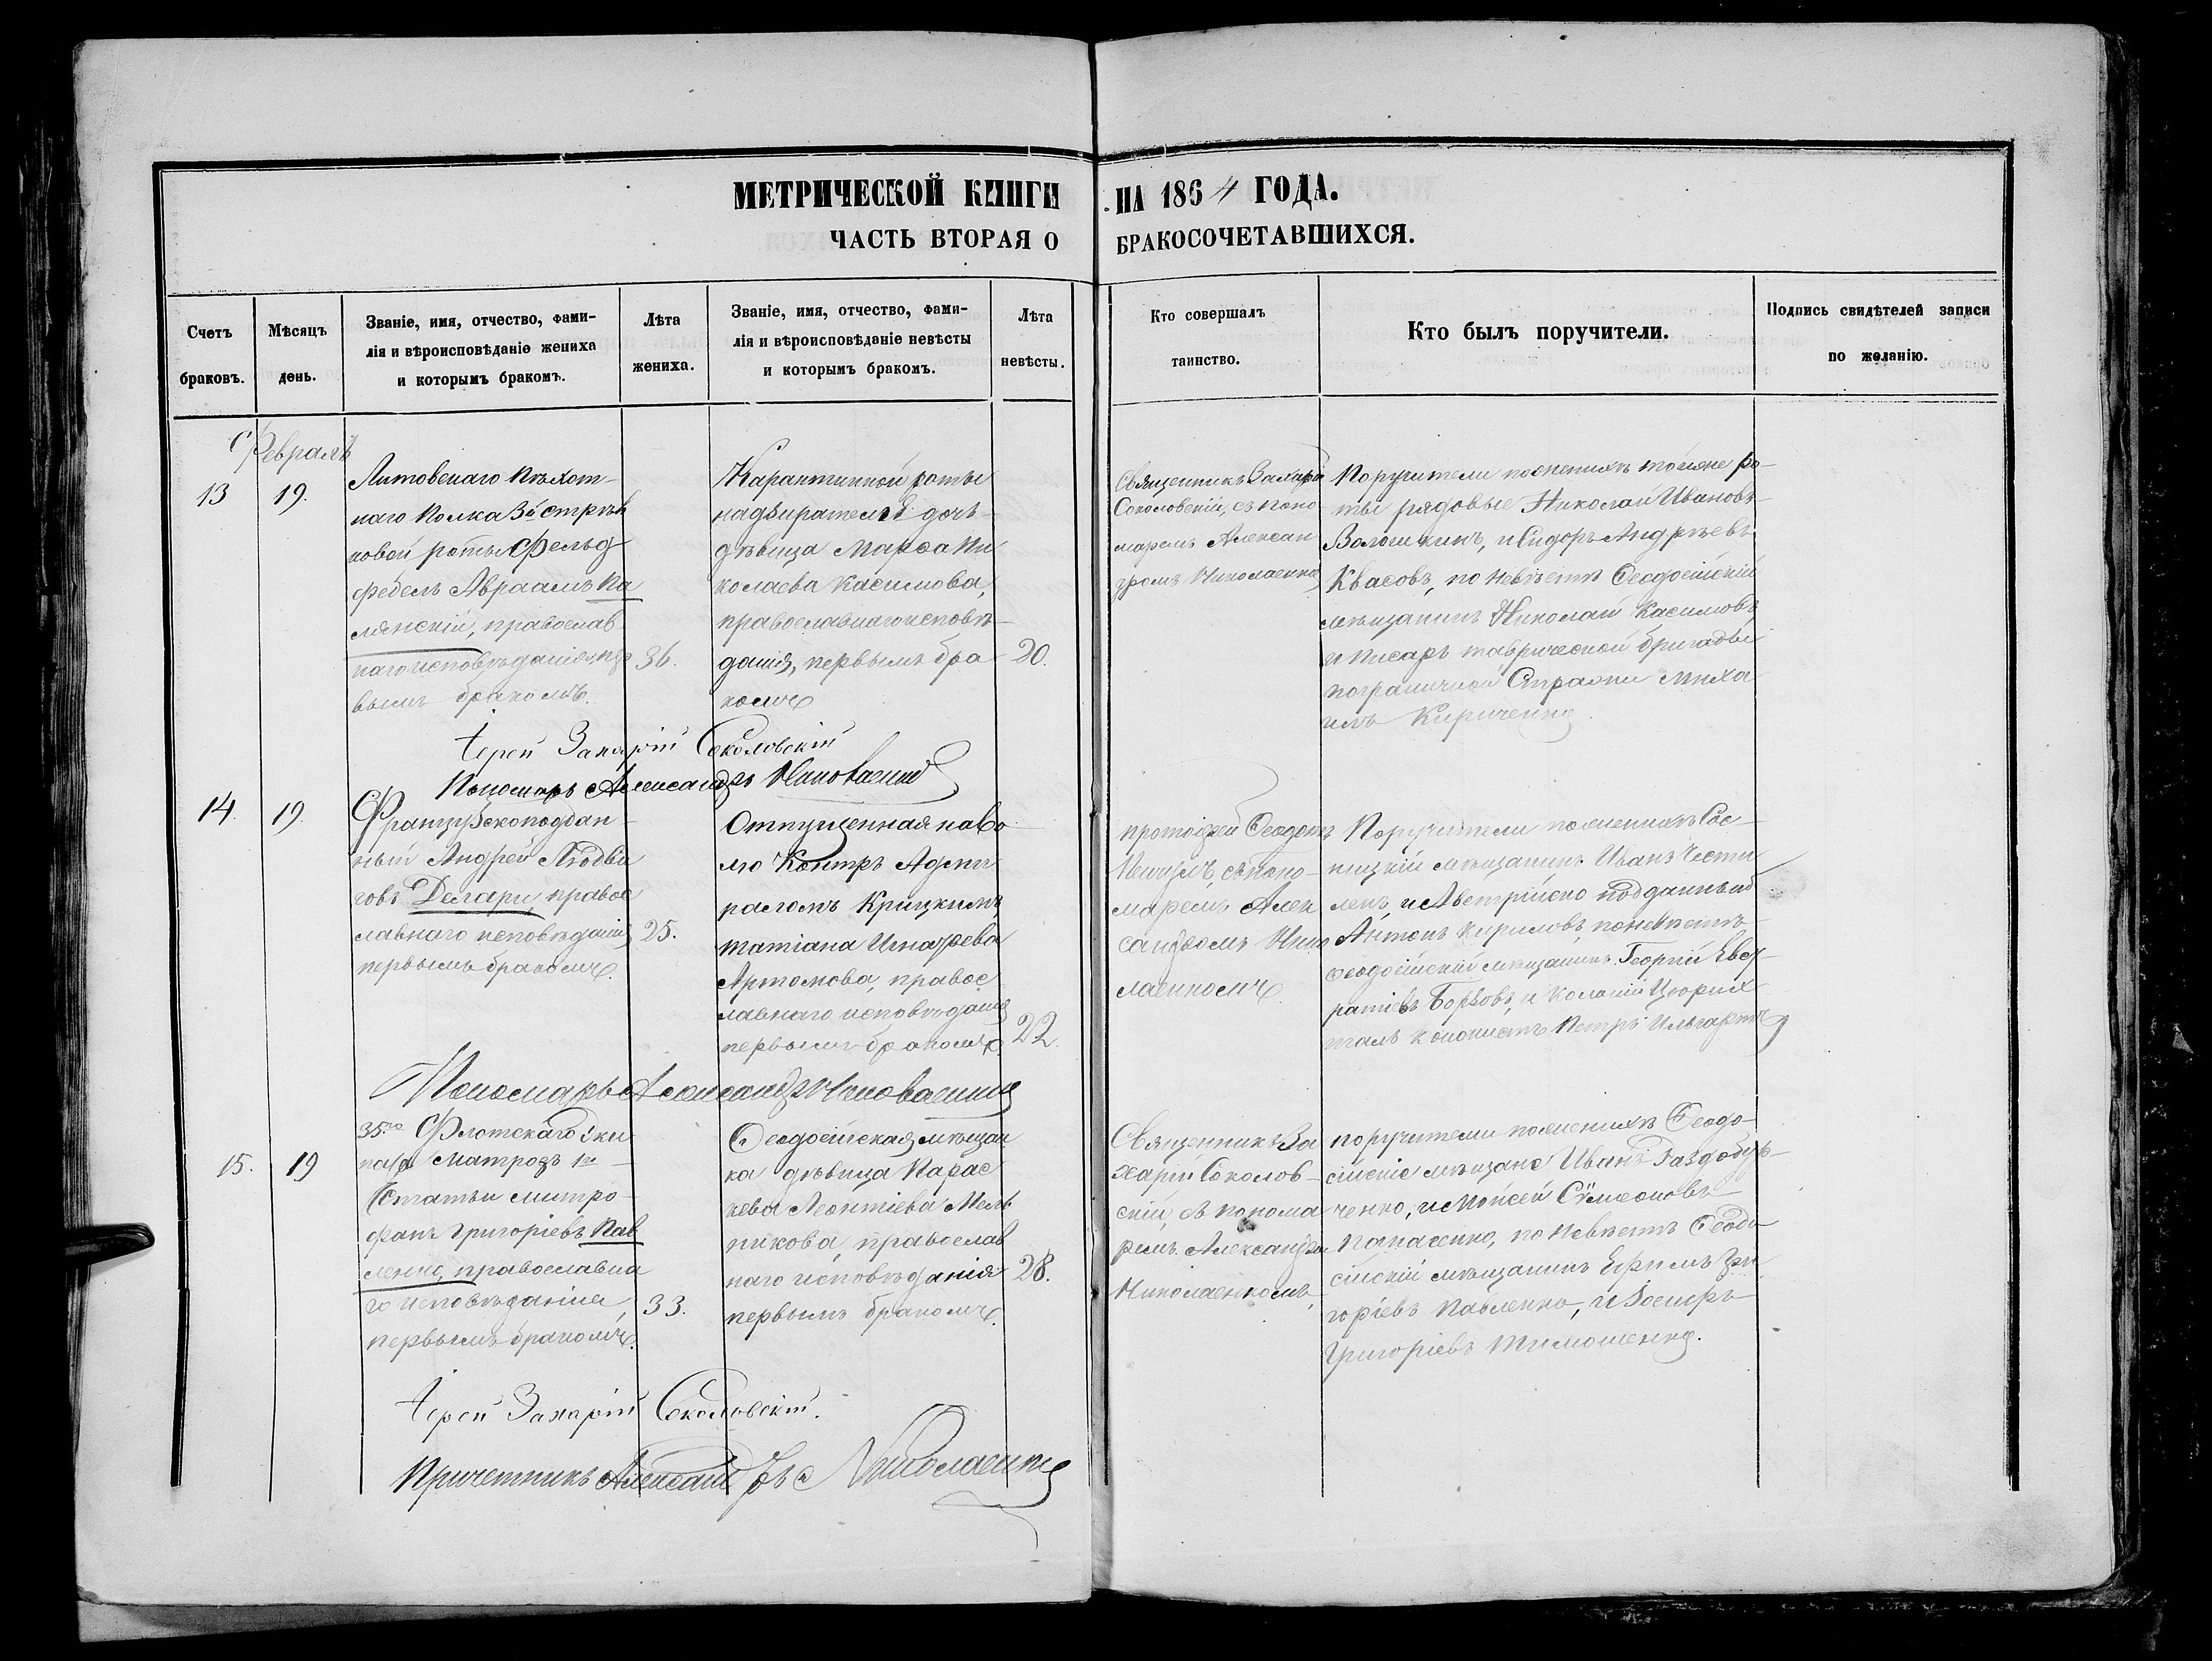 МЕТРИЧЕСКОЙ КНИГИ НА 1864 ГОДА.
ЧАСТЬ ВТОРАЯ О БРАКОСОЧЕТАВШИХСЯ.
Счетъ
браковъ.
Мѣсяцъ
день.
Званіе, имя, отчество, фами-
лія и вѣроисповѣданіе жениха
и которымъ бракомъ.
Лѣта
жениха.
Званіе, имя, отчество, фами-
лія и вѣроисповѣданіе невѣсты
и которымъ бракомъ.
Лѣта
невѣсты.
Кто совершалъ
таинство.
Кто былъ поручители.
Подпись свидѣтелей записи
по желанію.
Февраль
13
19.
Литовскаго Пѣхот-
наго Полка 3й стрѣл
ковой роты Фельд
фебель Авраамъ Па
лянскій, православ
наго исповѣданія, пер
вымъ бракомъ.
36.
Карантинной роты
надзирателя дочь
дѣвица Марѳа Ни
колаева Касимова,
православнаго исповѣ-
данія, первымъ бра
комъ
20.
Священникъ Захарій
Соколовскій, съ поно
маремъ Алексан
дромъ Николаенко
Поручители по женихѣ тойже ро-
ты рядовые Николай Ивановъ
Волошкинъ, и Сидоръ Андреевъ
Квасовъ, по невѣстѣ Ѳеодосійскій
мѣщанинъ Николай Касимовъ,
и писарь таврической бригады
пограничной Стражи Миха
илъ Кириченко.
Іерей Захарій Соколовскій
Пономарь Александръ Николаенко
14.
19.
Французскоподдан-
ный Андрей Людви
говъ Делари, правос
лавнаго исповѣданія
первымъ бракомъ.
25.
Отпущенная на во
лю Контръ Адми
раломъ Крицкимъ,
татіана Игнатьева
Артомова, правос
лавнаго исповѣданія
первымъ бракомъ.
22.
протоіерей Ѳеодотъ
съ поно-
маремъ Алек
сандромъ Нико
лаенкомъ.
Поручители по женихѣ Сос-
ницкій мѣщанинъ Иванъ Чести
ленъ, и Австрійско подданный
Антонъ Кириловъ, по невѣстѣ
ѳеодосійскій мѣщанинъ Георгій Евс-
ратіевъ Борзовъ, и Колоніи Цюрих
таль колонистъ Петръ Ильгартъ
Пономарь Александръ Николаенко
15.
19
35го Флотскаго Эки
пажа Матрозъ 1й
Статьи Митро
фанъ Григоріевъ Пав
ленко, православна
го исповѣданія,
первымъ бракомъ.
33.
Ѳеодосійская мѣщан
ка дѣвица Парас
кева Леонтіева Мель
никова, православ
наго исповѣданія
первымъ бракомъ.
28.
Священникъ За
харій Соколов-
скій, съ понома
ремъ Александромъ
Николаенкомъ,
поручители по женихѣ Ѳеодо-
сійскіе мѣщане Иванъ Раздобуд-
ченко, и Мойсей Сѵмеоновъ
Потаченко, по невѣстѣ Ѳеодо
сійскій мѣщанинъ Ефимъ Гри
горіевъ Павленко, и Іосифъ
Григоріевъ Тимошенко.
Іерей Захарій Соколовскій.
Причетникъ Александръ Николаенко